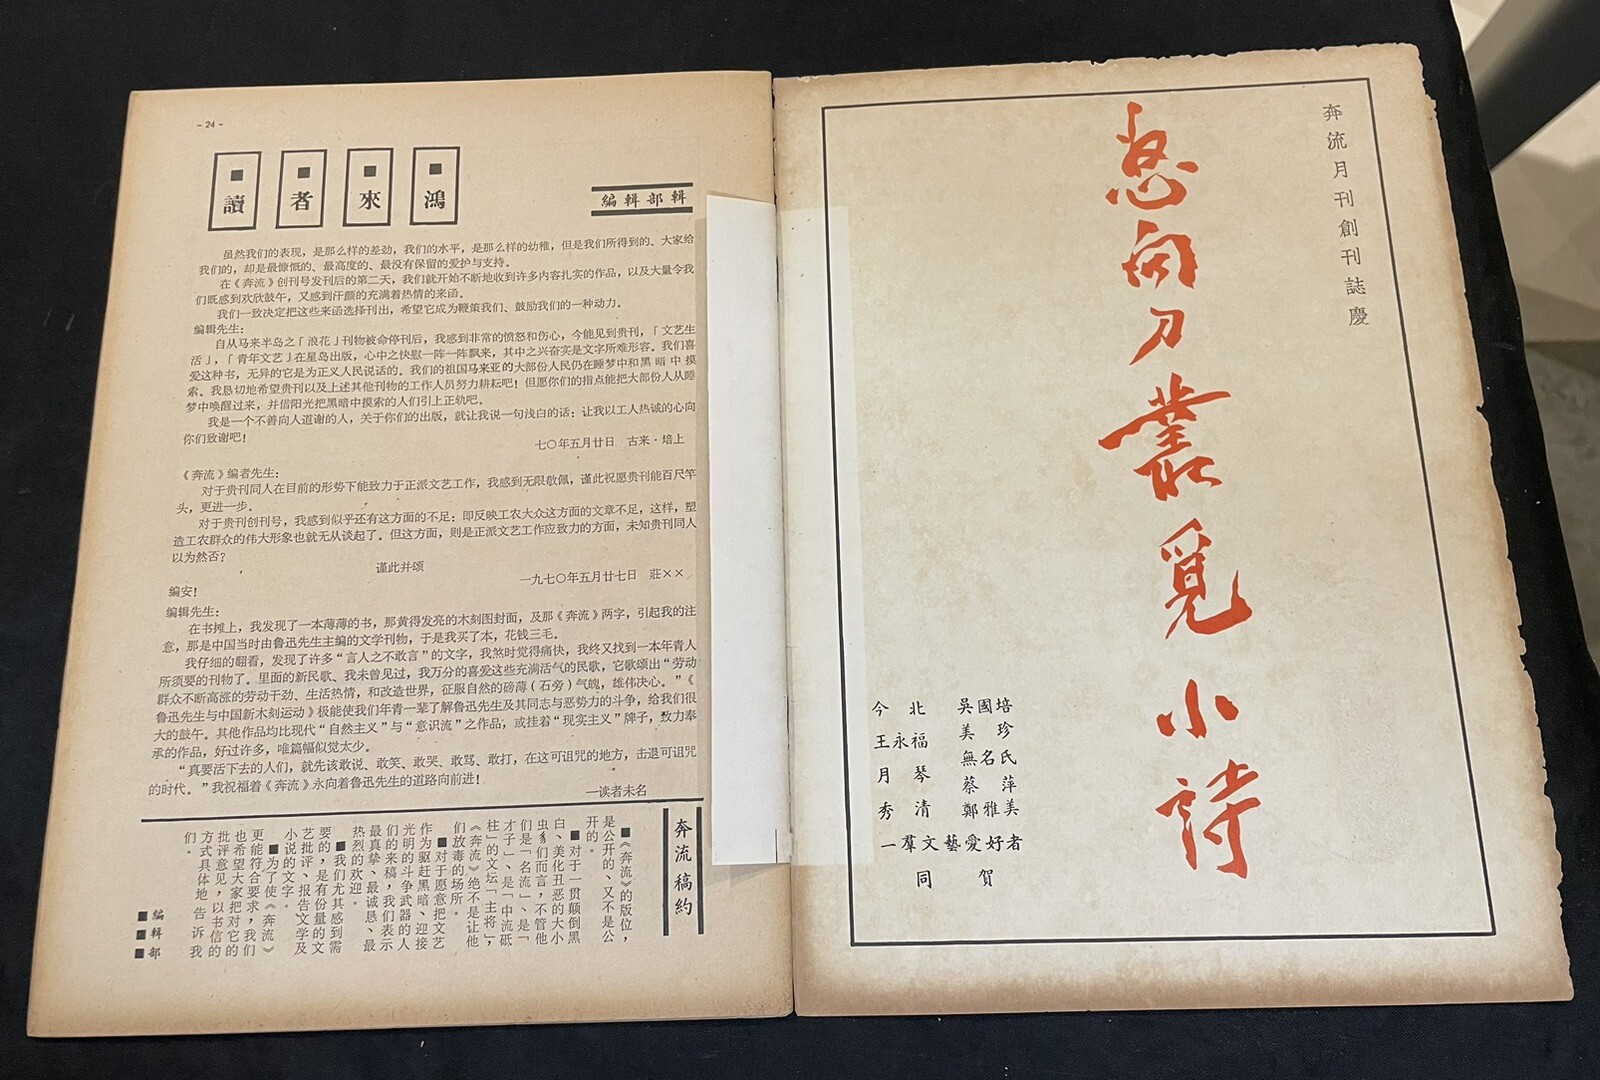 - 24 -
讀者來鴻
編輯部輯
虽然我们的表现，是那么样的差劲，我们的水平，是那么样的幼稚，但是我们所得到的、大家给
我们的，却是最慷慨的、最高度的、最没有保留的爱护与支持。
在《奔流》创刊号发刊后的第二天，我们就开始不断地收到许多内容扎实的作品，以及大量令我
们既感到欢欣鼓午，又感到汗颜的充满着热情的来函。
我们一致决定把这些来函选择刊出，希望它成为鞭策我们、鼓励我们的一种动力。
编辑先生：
自从马来半岛之「浪花」刊物被命停刊后，我感到非常的愤怒和伤心，今能见到贵刊，「文艺生
活」，「青年文艺」在星岛出版，心中之快慰一阵一阵飘来，其中之兴奋实是文字所难形容。我们喜
爱这种书，无异的它是为正义人民说话的。我们的祖国马来亚的大部份人民仍在睡梦中和黑暗中摸
索。我恳切地希望贵刊以及上述其他刊物的工作人员努力耕耘吧！但愿你们的指点能把大部份人从睡
梦中唤醒过来，并借阳光把黑暗中摸索的人们引上正轨吧。
我是一个不善向人道谢的人，关于你们的出版，就让我说一句浅白的话：让我以工人热诚的心向
你们致谢吧！
七〇年五月廿日 古来·培上
《奔流》编者先生：
对于贵刊同人在目前的形势下能致力于正派文艺工作，我感到无限敬佩，谨此祝愿贵刊能百尺竿
头，更进一步。
对于贵刊创刊号，我感到似乎还有这方面的不足：即反映工农大众这方面的文章不足，这样，塑
造工农群众的伟大形象也就无从谈起了。但这方面，则是正派文艺工作应致力的方面，未知贵刊同人
以为然否？
谨此并颂
编安！
一九七〇年五月廿七日 莊××
编辑先生：
在书摊上，我发现了一本薄薄的书，那黄得发亮的木刻图封面，及那《奔流》两字，引起我的注
意，那是中国当时由鲁迅先生主编的文学刊物，于是我买了本，花钱三毛。
我仔细的翻看，发现了许多“言人之不敢言”的文字，我煞时觉得痛快，我终又找到一本年青人
所须要的刊物了。里面的新民歌、我未曾见过，我万分的喜爱这些充满活气的民歌，它歌颂出“劳动
群众不断高涨的劳动干劲、生活热情，和改造世界，征服自然的磅薄(石旁)气魄，雄伟决心。”《
鲁迅先生与中国新木刻运动》极能使我们年青一辈了解鲁迅先生及其同志与恶势力的斗争，给我们很
大的鼓午。其他作品均比现代“自然主义”与“意识流”之作品，或挂着“现实主义”牌子，致力奉
承的作品，好过许多，唯篇幅似觉太少。
“真要活下去的人们，就先该敢说、敢笑、敢哭、敢骂、敢打，在这可诅咒的地方，击退可诅咒
的时代。”我祝福着《奔流》永向着鲁迅先生的道路向前进！
一读者未名
奔流稿約
■《奔流》的版位，
是公开的、又不是公
开的。
■对于一贯颠倒黑
白、美化丑恶的大小
虫豸们而言，不管他
们是「名流」、是「
才子」、是「中流砥
柱」的文坛「主将」，
《奔流》绝不是让他
们放毒的场所。
■对于愿意把文艺
作为驱赶黑暗、迎接
光明的斗争武器的人
们的来稿，我们表示
最真挚、最诚恳、最
热烈的欢迎。
■我们尤其感到需
要的，是有份量的文
艺批评、报告文学及
小说的文字。
■为了使《奔流》
更能符合要求，我们
也希望大家把对它的
批评意见，以书信的
方式具体地告诉我
们。
■編
■輯
■部
奔流月刊創刊誌慶
怒向刀叢覓小詩
吳國培
美珍
無名氏
蔡萍
鄭雅美
今北
王永福
月琴
秀清
一羣文藝愛好者
同賀